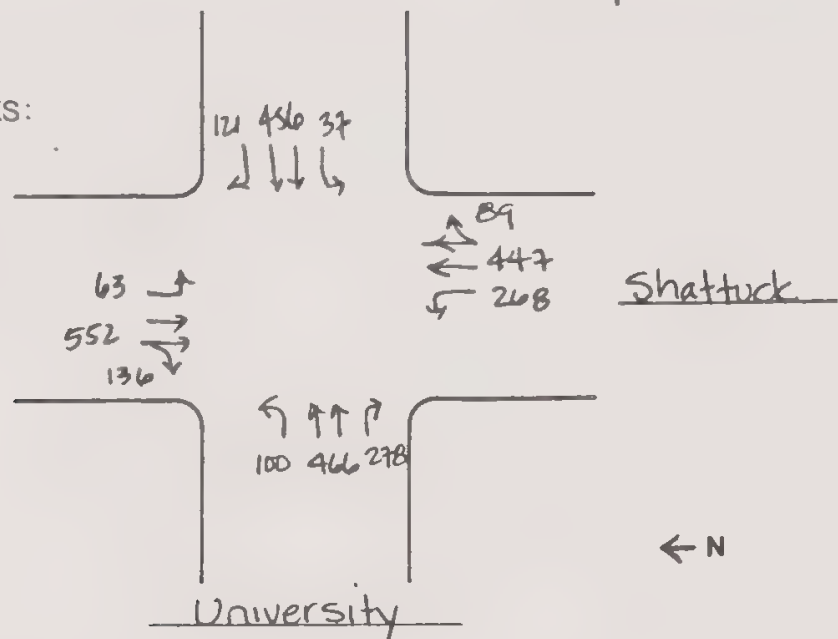 KS:
121 456 37
89
447
268
Shattuck
63
552
136
100 466 278
← N
University